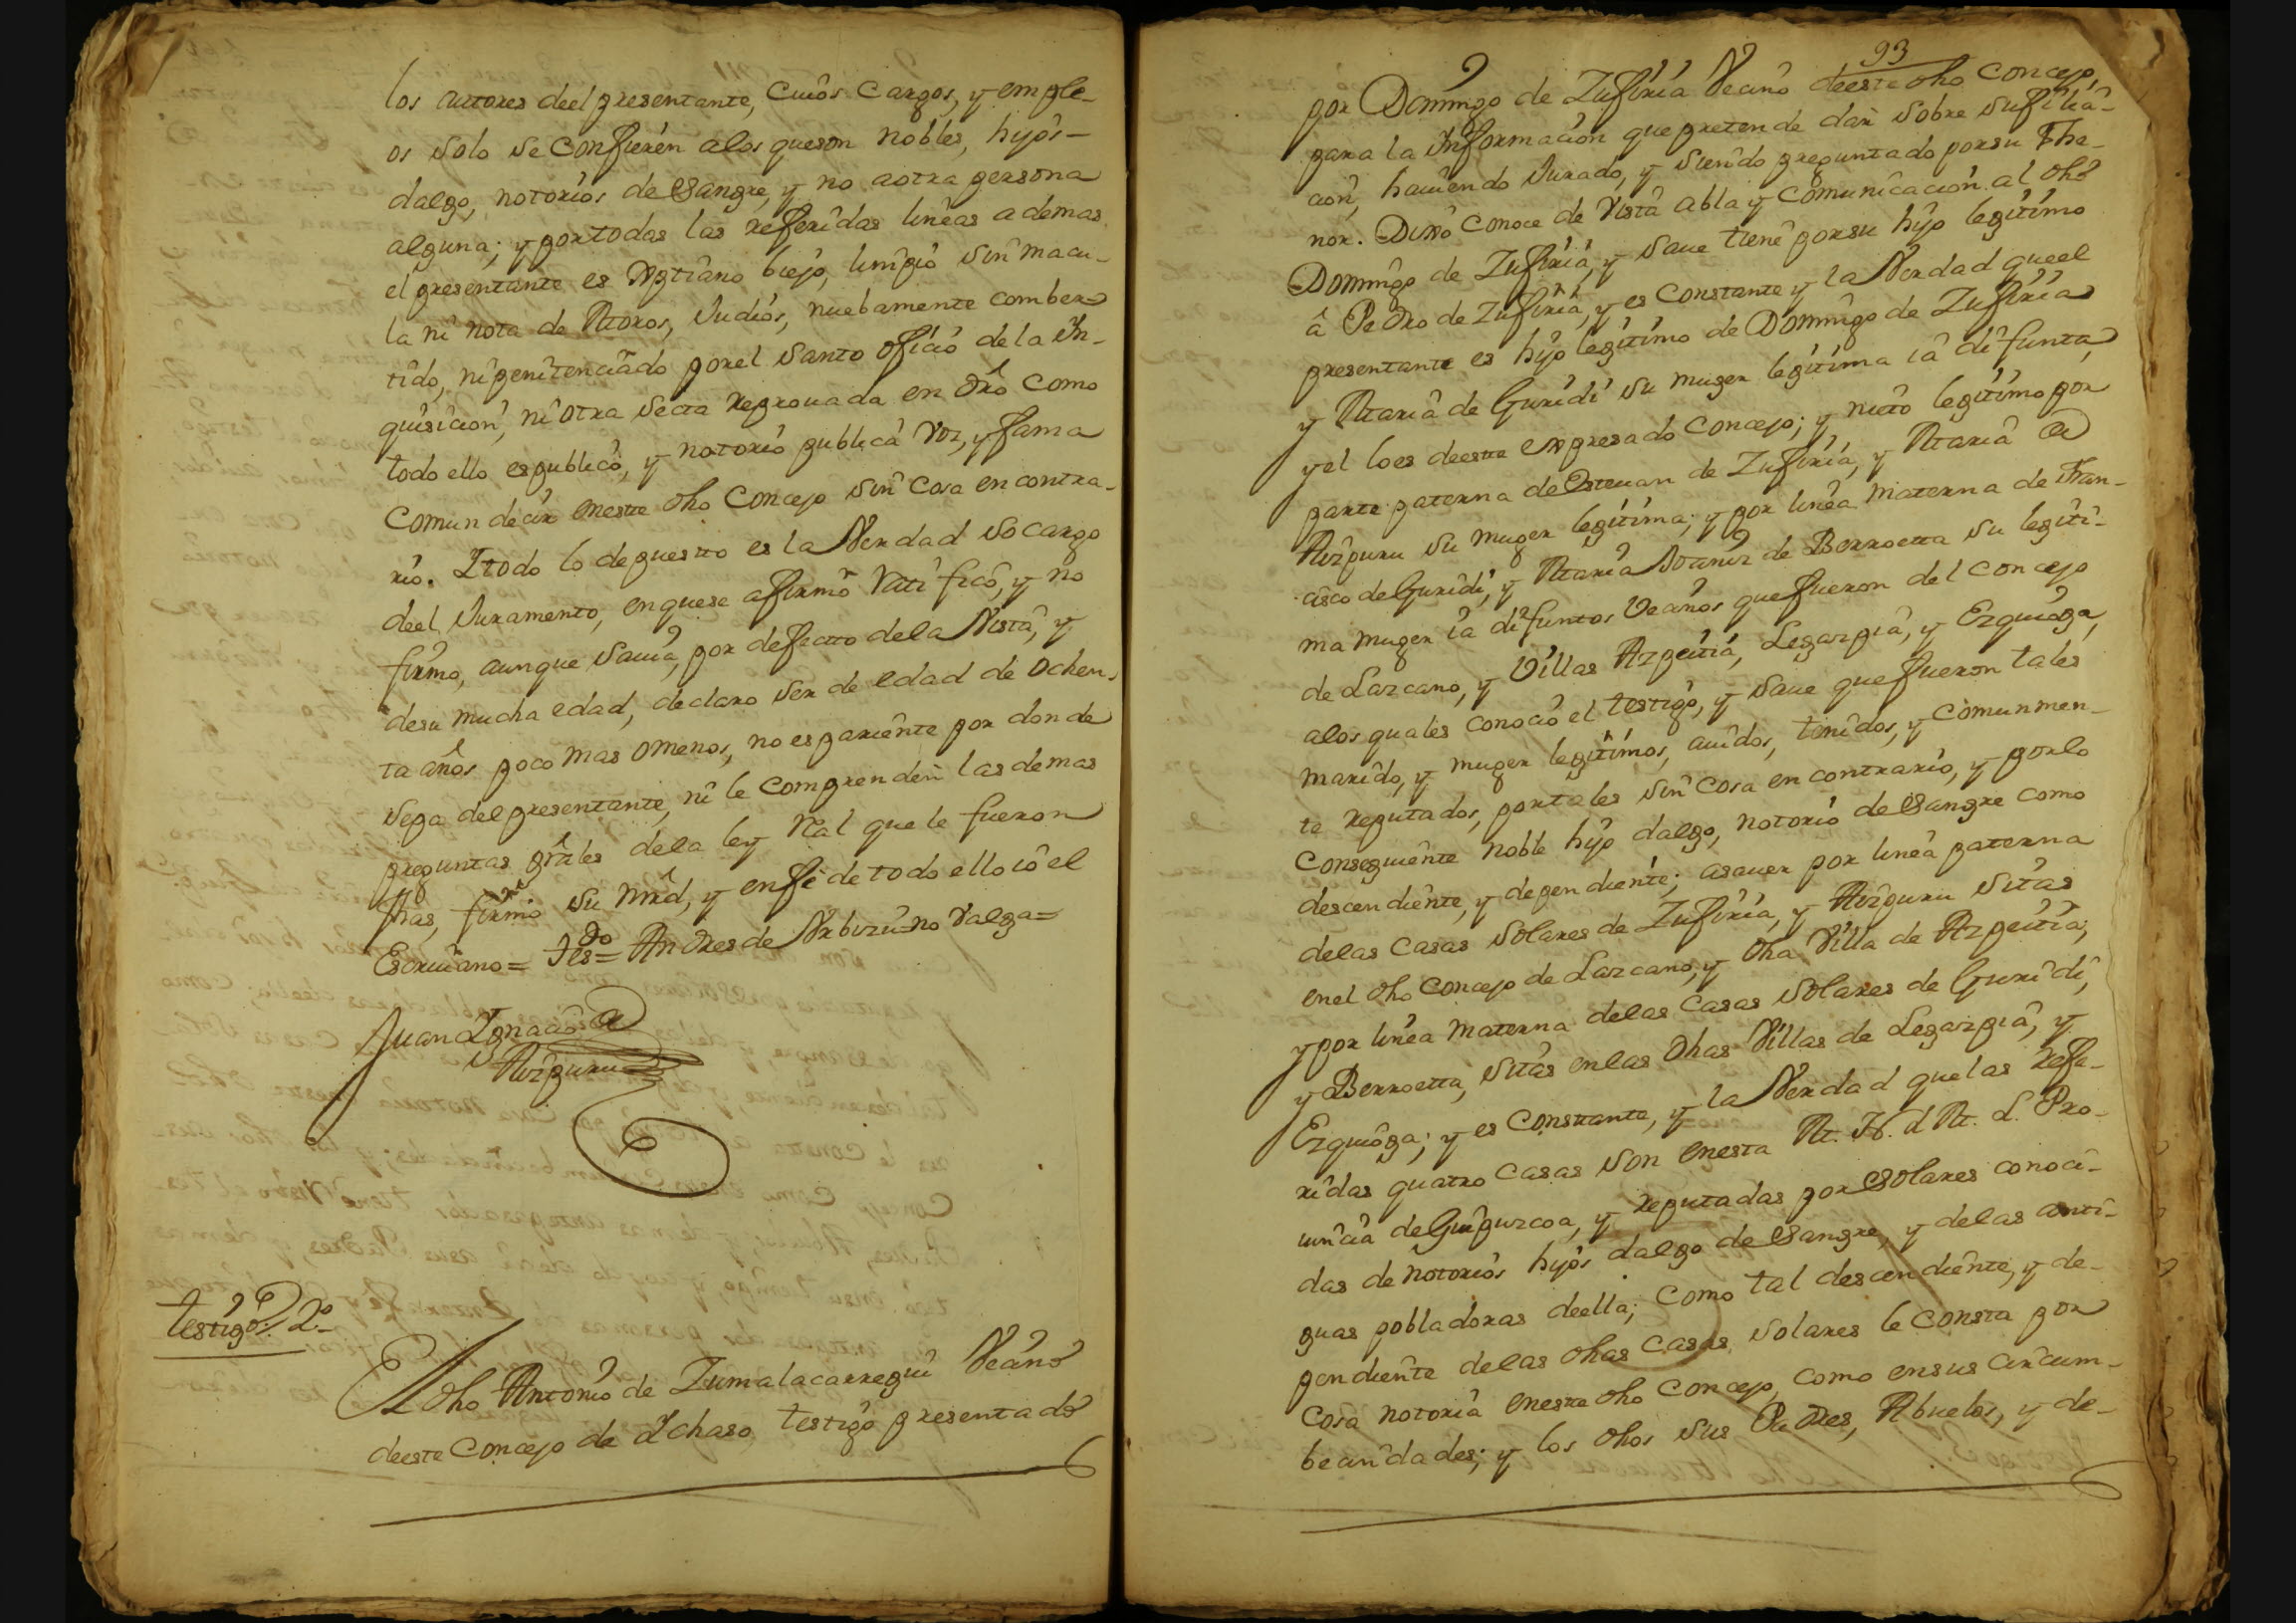 los autores deel presentante, cuios cargos, y emple-
os solo se confieren alos queson nobles, hijos-
dalgo, notorios de sangre, y no aotra persona
alguna; y portodas las referidas lineas ademas
el presentante es Xptiano biejo, limpio sin macu-
la ni nota de Moros, Judios, nuebamente comber-
tido, ni penitenciado porel Santo oficio de la In-
quisicion, ni otra secta reprouada en dro como
todo ello espublico, y notorio publica voz, y fama
Comun decir eneste dho Concejo sin cosa en contra-
rio. Itodo lo depuesto es la Verdad so cargo
deel Juramento, enquese afirmó ratificó, y no
firmo, aunque sauia, por defecto dela Vista, y
desu mucha edad, declaro ser de edad de ochen-
ta años poco mas omenos, no espariente por donde
sepa del presentante, ni le comprenden las demas
preguntas grales dela ley Ral que le fueron
fhas, firmo su mrd, y enfe de todo ello io el
Escriuano = Andres de Vrbizu = no Valga =
Juan Ignacio de
Aizpuru
testigo 2º
El dho Antonio de Zumalacarregui Vecino
deeste Concejo de Ichaso testigo presentado
93
por Domingo de Zufiria Vecino deeste dho Concejo,
para la Informacion que pretende dar sobre sufilia-
cion, hauiendo Jurado, y siendo preguntado porsu The-
nor. Dixo conoce de Vista abla y comunicacion al dho
Domingo de Zufiria, y saue tiene porsu hijo legitimo
â Pedro de Zufiria, y es constante y la Verdad queel
presentante es hijo legitimo de Domingo de Zufiria
y Maria de Guridi su muger legitima ia difunta,
y el loes deeste expresado Concejo; y nieto legitimo por
parte paterna de Esteuan de Zufiria, y Maria de
Aizpuru su muger legitima; y por linea materna de Fran-
cisco de Guridi, y Maria Joaniz de Berroetta su legiti-
ma muger ia difuntos Vecinos que fueron del Concejo
de Lazcano, y Villas Azpeitia, Legazpia, y Ezquioga,
alos quales conocio el testigo, y saue que fueron tales
marido, y muger legitimos, auidos, tenidos, y comunmen-
te reputados, portales sin cosa en contrario, y porlo
consequiente noble hijo dalgo, notorio de sangre como
descendiente, y dependiente; asauer por linea paterna
delas casas solares de Zufiria, y Aizpuru sitas
enel dho Concejo de Lazcano, y dha Villa de Azpeitia;
y por linea materna delas casas solares de Guridi,
y Berroetta, sitas enlas dhas Villas de Legazpia, y
Ezquioga; y es constante, y la Verdad quelas refe-
ridas quatro casas son enesta M. N. y M. L. Pro-
uincia de Guipuzcoa, y reputadas por solares conoci-
das de notorios hijos dalgo de sangre, y delas anti-
guas pobladoras deella; como tal descendiente, y de-
pendiente delas dhas casas solares le consta por
cosa notoria eneste dho Concejo, como ensus circum-
becindades; y los dhos sus Padres, Abuelos, y de-